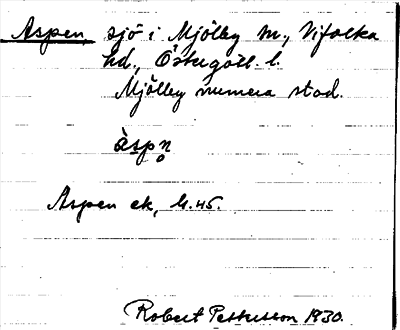 Aspen, sjö i Mjölby sn., Vifolka
hd., Östergötl. l.
Mjölby numera stad.
àspn̥
Aspen ek, G. 45.
Robert Pettersson 1930.